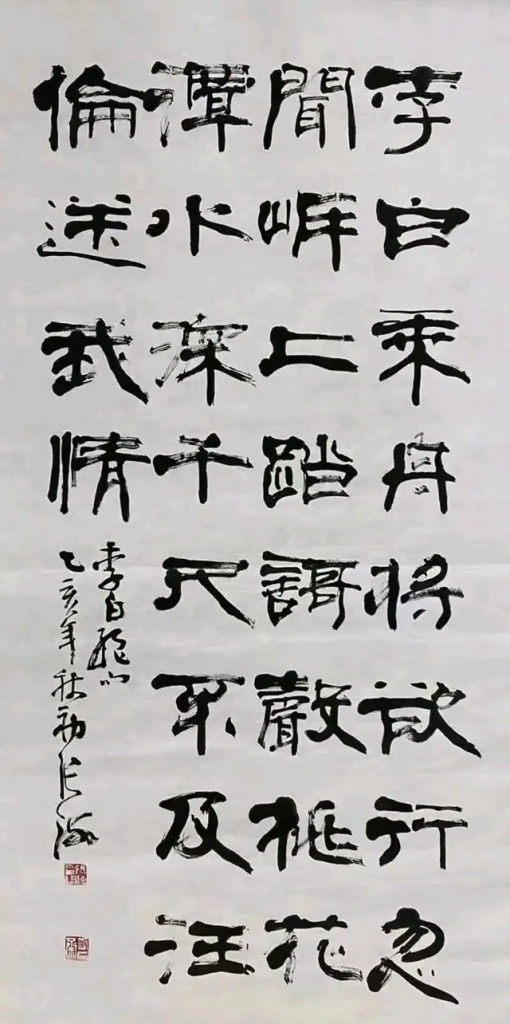 李白乘舟将欲行忽
聞岸上踏謌聲桃花
潭水深千尺不及汪
倫送我情
李白
乙亥年秋初张海